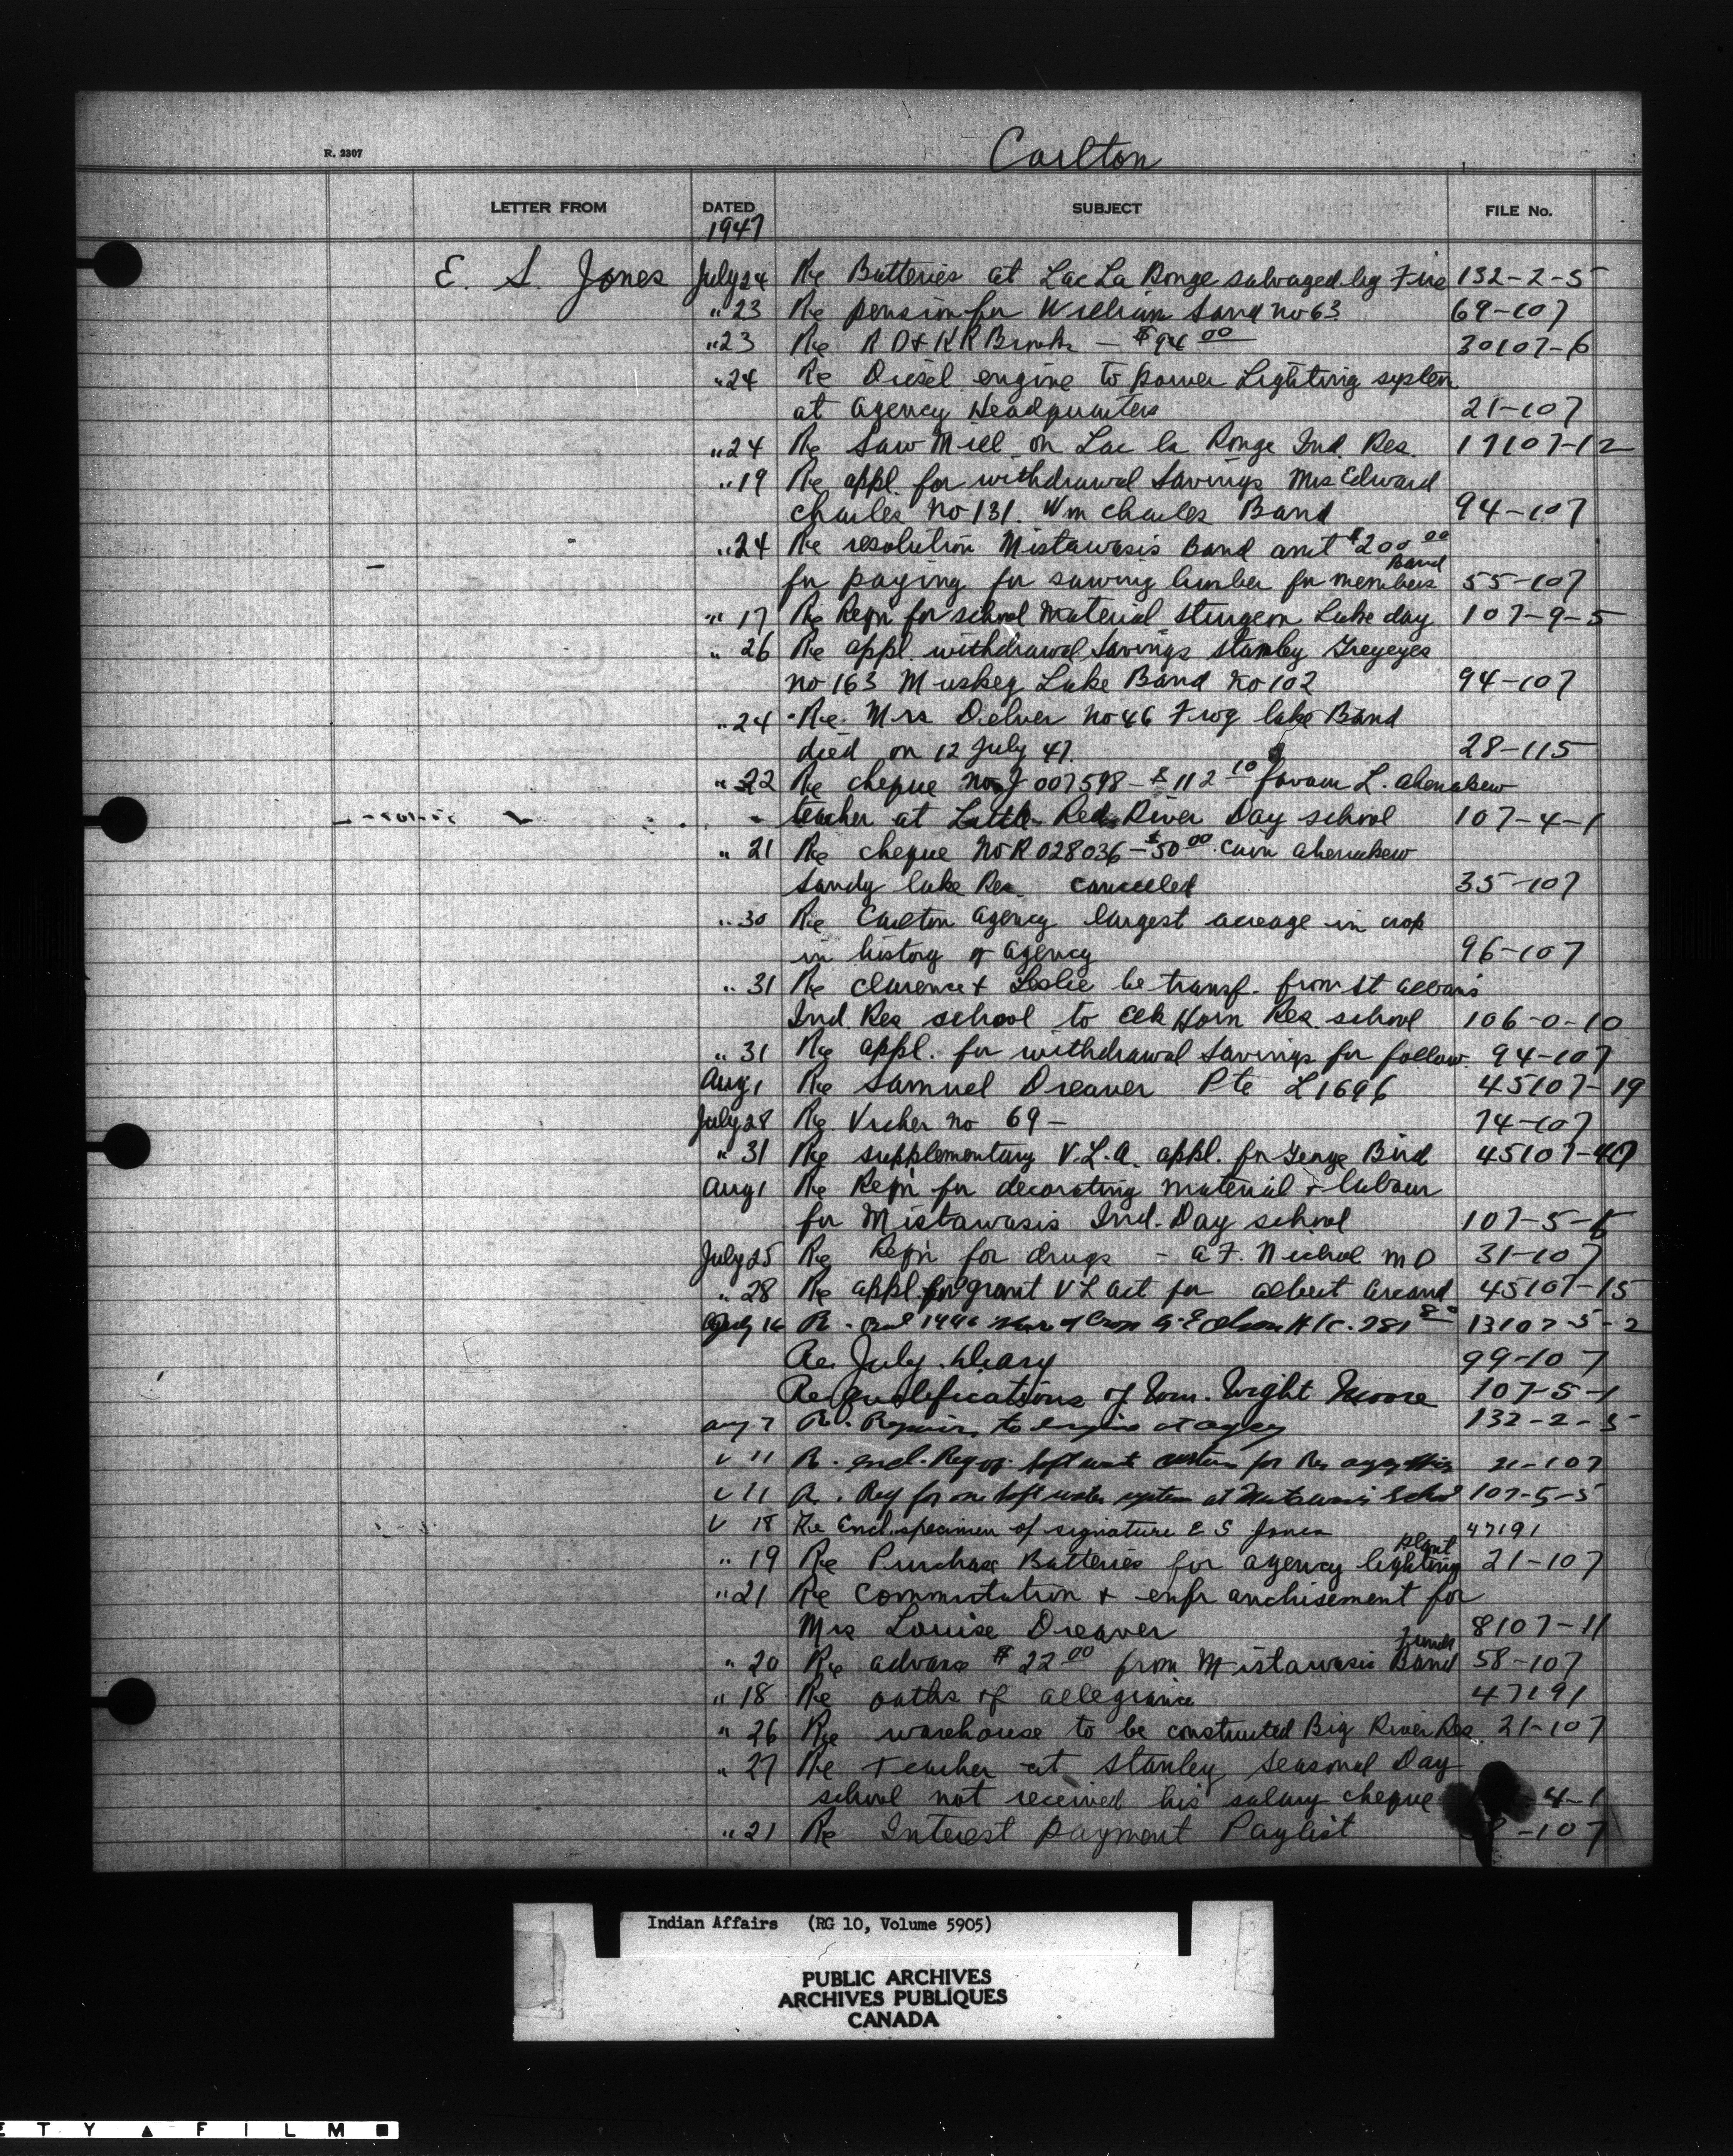 R. 2307
Carlton
LETTER FROM DATED SUBJECT FILE No.
1947
E. S. Jones July 24 Re Batteries at Lac La Ronge salvaged by Fire 132-2-5
" 23 Re pension for William Sand no 63 69-107
" 23 Re R D & K R Brooks — $94 00 30107-6
" 24 Re Diesel engine to power Lighting system
at Agency Headquarters 21-107
" 24 Re Saw Mill on Lac la Ronge Ind. Res. 17107-12
" 19 Re appl. for withdrawal Savings Mrs Edward
Charles No 131. Wm Charles Band 94-107
" 24 Re resolution Mistawasis Band amt $200 00
for paying for sawing lumber for Band members 55-107
" 17 Re Reqn for school material Sturgeon Lake day 107-9-5
" 26 Re appl. withdrawal Savings Stanley Greyeyes
no 163 Muskeg Lake Band No 102 94-107
" 24 Re. Mrs Delver No 46 Frog lake Band
died on 12 July 47. 28-115
" 22 Re cheque No J 007598 - $112 10 favour L. Ahenakew
teacher at Little Red River Day school 107-4-1
" 21 Re cheque No R 028036 - $50 00 Ahenakew
Sandy lake Res. cancelled 35-107
" 30 Re Carlton Agency largest acreage in crop
in history of Agency 96-107
" 31 Re Clarence & Leslie be transf. from St Alban's
Ind. Res school to Elk Horn Res. school 106-0-10
" 31 Re appl. for withdrawal Savings for follow. 94-107
Aug 1 Re Samuel Dreaver Pte L1696 45107-19
July 28 Re Vucher no 69 - 74-107
" 31 Re supplementary V.L.A. appl. for George Bird 45107-40
Aug 1 Re Reqn for decorating material & labour
for Mistawasis Ind. Day school 107-5-5
July 25 Re Reqn for drugs - A F. Nichol M D 31-107
" 28 Re appl. for grant V L act for Albert Arcand 45107-15
July 16 R. 1946 Share of Crop 13107-5-2
Re. July Diary 99-107
Re qualifications of Wm. Wright Moore 107-5-1
Aug 7 Re. Repairs to engine at agcy 132-2-5
" 11 R. encl. Reqn. soft water for agcy 21-107
" 11 R. Req for one soft water system at Mistawasis School 107-5-5
" 18 Re Encl. specimen of signature E S Jones 47191
" 19 Re Purchase Batteries for agency lighting plant 21-107
" 21 Re Commutation & enfranchisement for
Mrs Louise Dreaver 8107-11
" 20 Re advance $22 00 from Mistawasis Band Funds 58-107
" 18 Re oaths of allegiance 47191
" 26 Re warehouse to be constructed Big River Res. 21-107
" 27 Re Teacher at Stanley Seasonal Day
school not received his salary cheque 4-1
" 21 Re Interest payment Paylist -107
Indian Affairs (RG 10, Volume 5905)
PUBLIC ARCHIVES
ARCHIVES PUBLIQUES
CANADA
E T Y ▲ F I L M